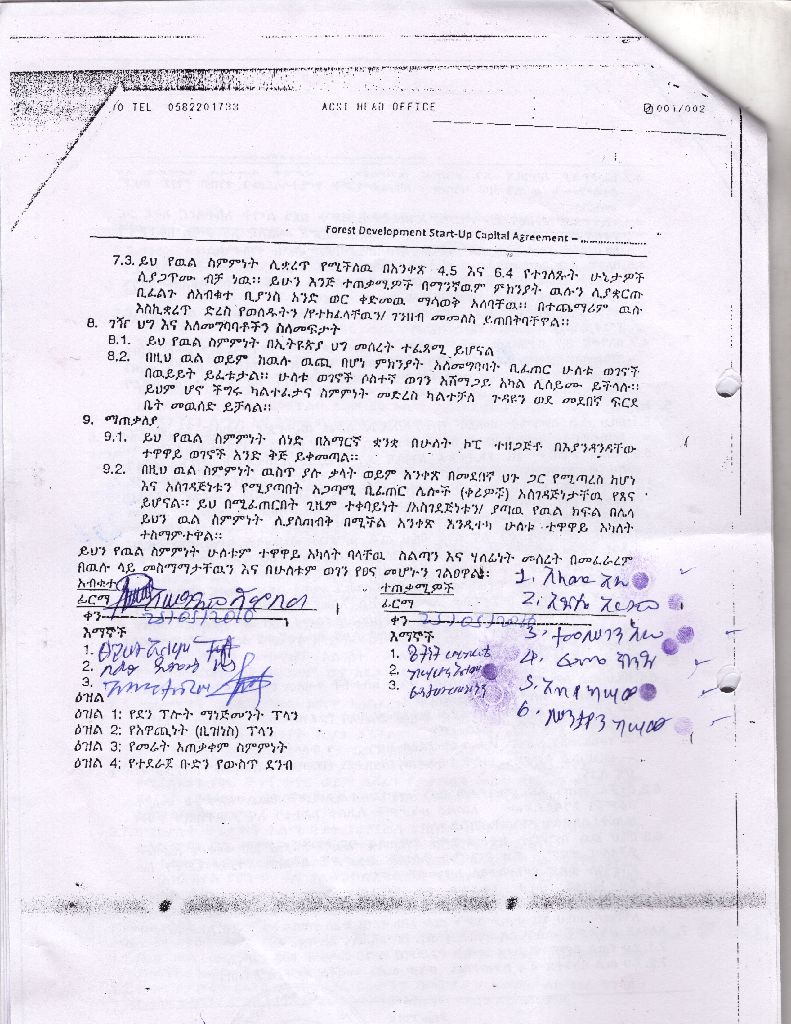 /O TEL 0582201733 ACSI HEAD OFFICE 001/002
Forest Development Start-Up Capital Agreement – ....................
7.3. ይህ የዉል ስምምነት ሊቋረጥ የሚችለዉ በአንቀጽ 4.5 እና 6.4 የተገለጹት ሁኔታዎች
ሲያጋጥሙ ብቻ ነዉ። ይሁን እንጅ ተጠቃሚዎች በማንኛዉም ምክንያት ዉሉን ሊያቋርጡ
ቢፈልጉ ለአብቁተ ቢያንስ አንድ ወር ቀድመዉ ማሳወቅ አለባቸዉ። በተጨማሪም ዉሉ
እስኪቋረጥ ድረስ የወሰዱትን /የተከፈላቸዉን/ ገንዘብ መመለስ ይጠበቅባቸዋል።
8. ገዥ ህግ እና አለመግባባቶችን ስለመፍታት
8.1. ይህ የዉል ስምምነት በኢትዮጵያ ህግ መሰረት ተፈጻሚ ይሆናል
8.2. በዚህ ዉል ወይም ከዉሉ ዉጪ በሆነ ምክንያት አለመግባባት ቢፈጠር ሁለቱ ወገኖች
በዉይይት ይፈቱታል። ሁለቱ ወገኖች ሶስተኛ ወገን አሸማጋይ አካል ሊሰይሙ ይችላሉ።
ይህም ሆኖ ችግሩ ካልተፈታና ስምምነት መድረስ ካልተቻለ ጉዳዩን ወደ መደበኛ ፍርድ
ቤት መዉሰድ ይቻላል።
9. ማጠቃለያ
9.1. ይህ የዉል ስምምነት ሰነድ በአማርኛ ቋንቋ በሁለት ኮፒ ተዘጋጅቶ በእያንዳንዳቸው
ተዋዋይ ወገኖች አንድ ቅጅ ይቀመጣል።
9.2. በዚህ ዉል ስምምነት ዉስጥ ያሉ ቃላት ወይም አንቀጽ በመደበኛ ህጉ ጋር የሚጣረስ ከሆነ
እና አስገዳጅነቱን የሚያጣበት አጋጣሚ ቢፈጠር ሌሎች (ቀሪዎቹ) አስገዳጅነታቸዉ የጸና
ይሆናል። ይህ በሚፈጠርበት ጊዜም ተቀባይነት /አስገዳጅነቱን/ ያጣዉ የዉል ክፍል በሌላ
ይህን ዉል ስምምነት ሊያስጠብቅ በሚችል አንቀጽ እንዲተካ ሁለቱ ተዋዋይ አካላት
ተስማምተዋል።
ይህን የዉል ስምምነት ሁለቱም ተዋዋይ አካላት ባላቸዉ ስልጣን እና ሃላፊነት መሰረት በመፈራረም
በዉሉ ላይ መስማማታቸዉን እና በሁለቱም ወገን የፀና መሆኑን ገልፀዋል።
አብቁተ ተጠቃሚዎች
ፊርማ ፊርማ
ቀን 25/05/2010 ቀን 25/05/2010
እማኞች እማኞች
1. 1.
2. 2.
3. 3.
1.
2.
3.
4.
5.
6.
ዕዝል
ዕዝል 1: የደን ፕሎት ማነጅመንት ፕላን
ዕዝል 2: የአዋጪነት (ቢዝነስ) ፕላን
ዕዝል 3; የመሬት አጠቃቀም ስምምነት
ዕዝል 4; የተደራጀ ቡድን የውስጥ ደንብ